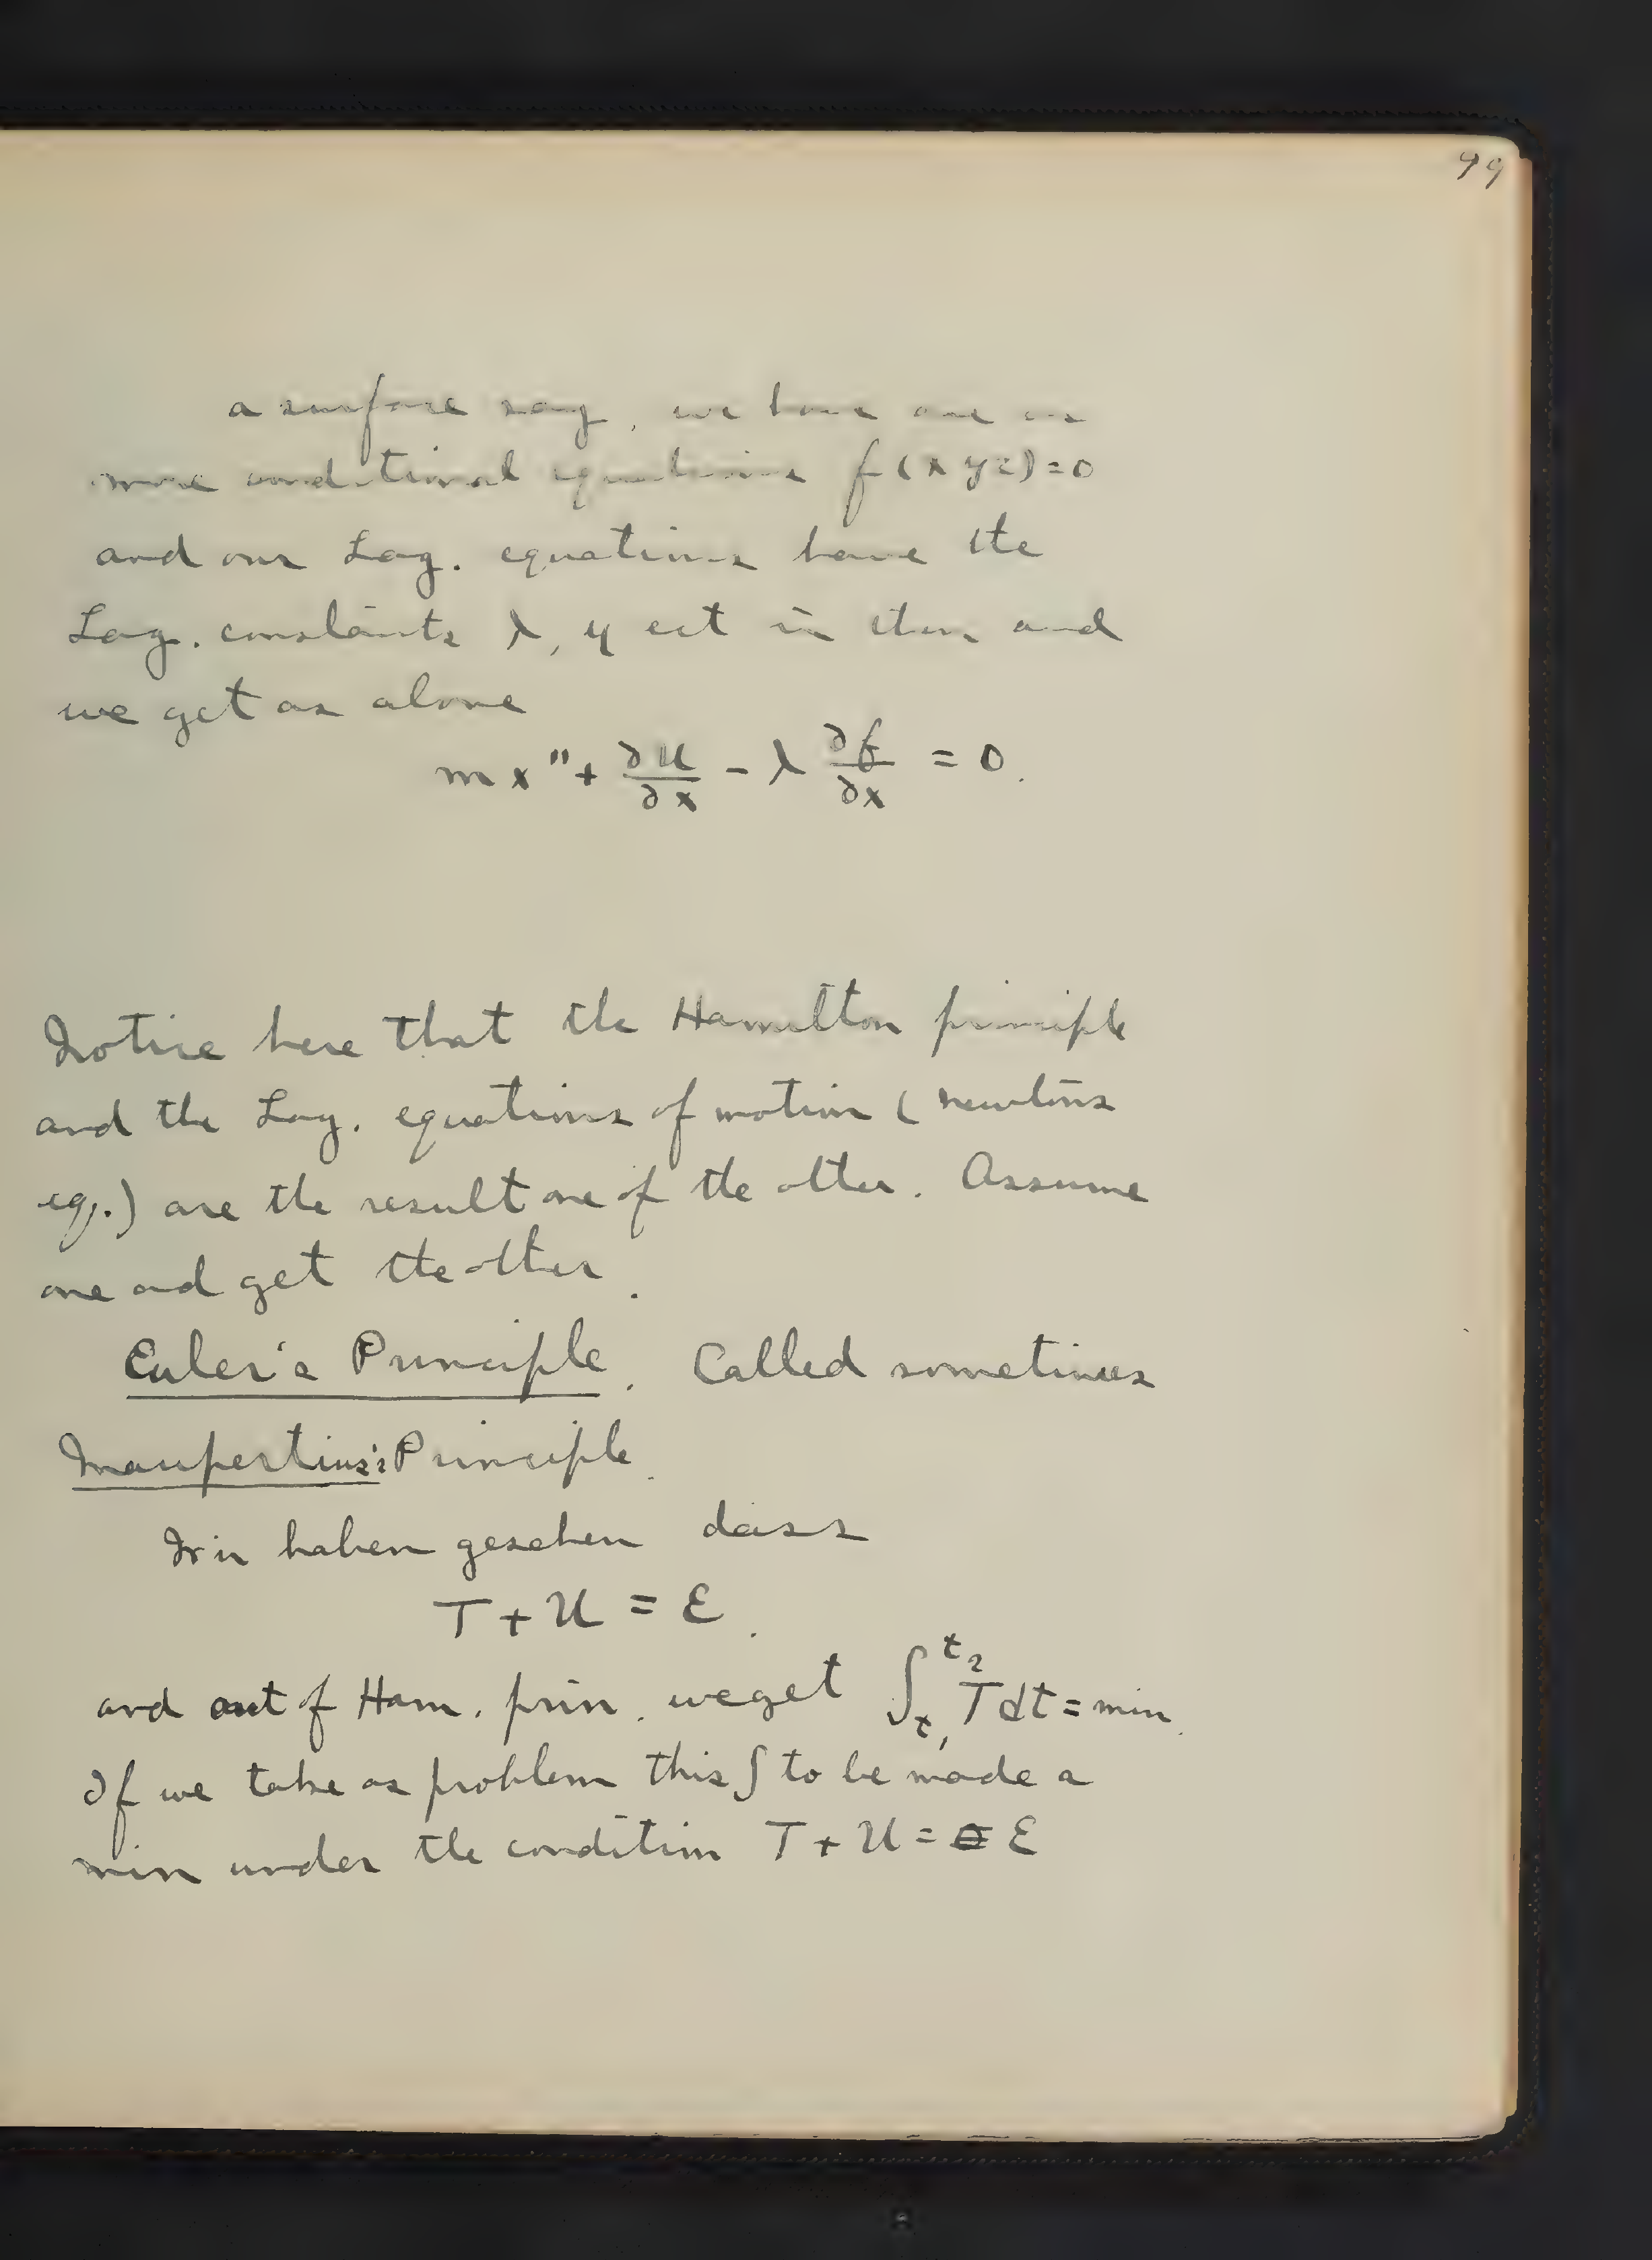 99
a surface say, we have one or
more conditional equations f(x y z)=0
and our Lag. equations have the
Lag. constants λ, μ ect in them and
we get as above
mx" + ∂U/∂x - λ ∂f/∂x = 0.
Notice here that the Hamilton principle
and the Lag. equations of motion (newtons
eq.) are the result one of the other. Assume
one and get the other.
Euler's Principle. Called sometimes
Maupertius's Principle.
Wir haben gesehen dass
T + U = E.
and out of Ham. prin. we get ∫_{t_1}^{t_2} T dt = min.
If we take as problem this ∫ to be made a
min under the condition T + U = E